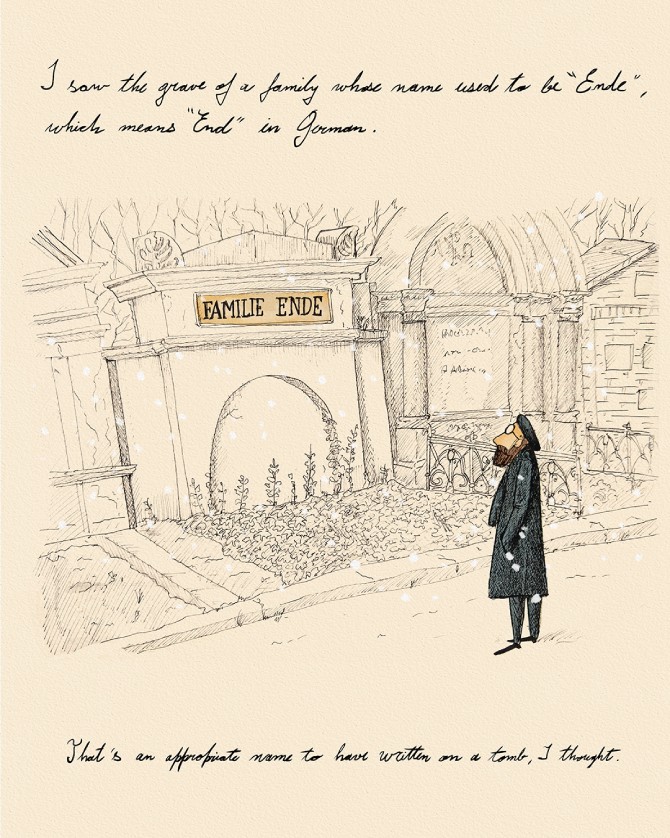 I saw the grave of a family whose name used to be "Ende",
which means "End" in German.
FAMILIE ENDE
That's an appropriate name to have written on a tomb, I thought.